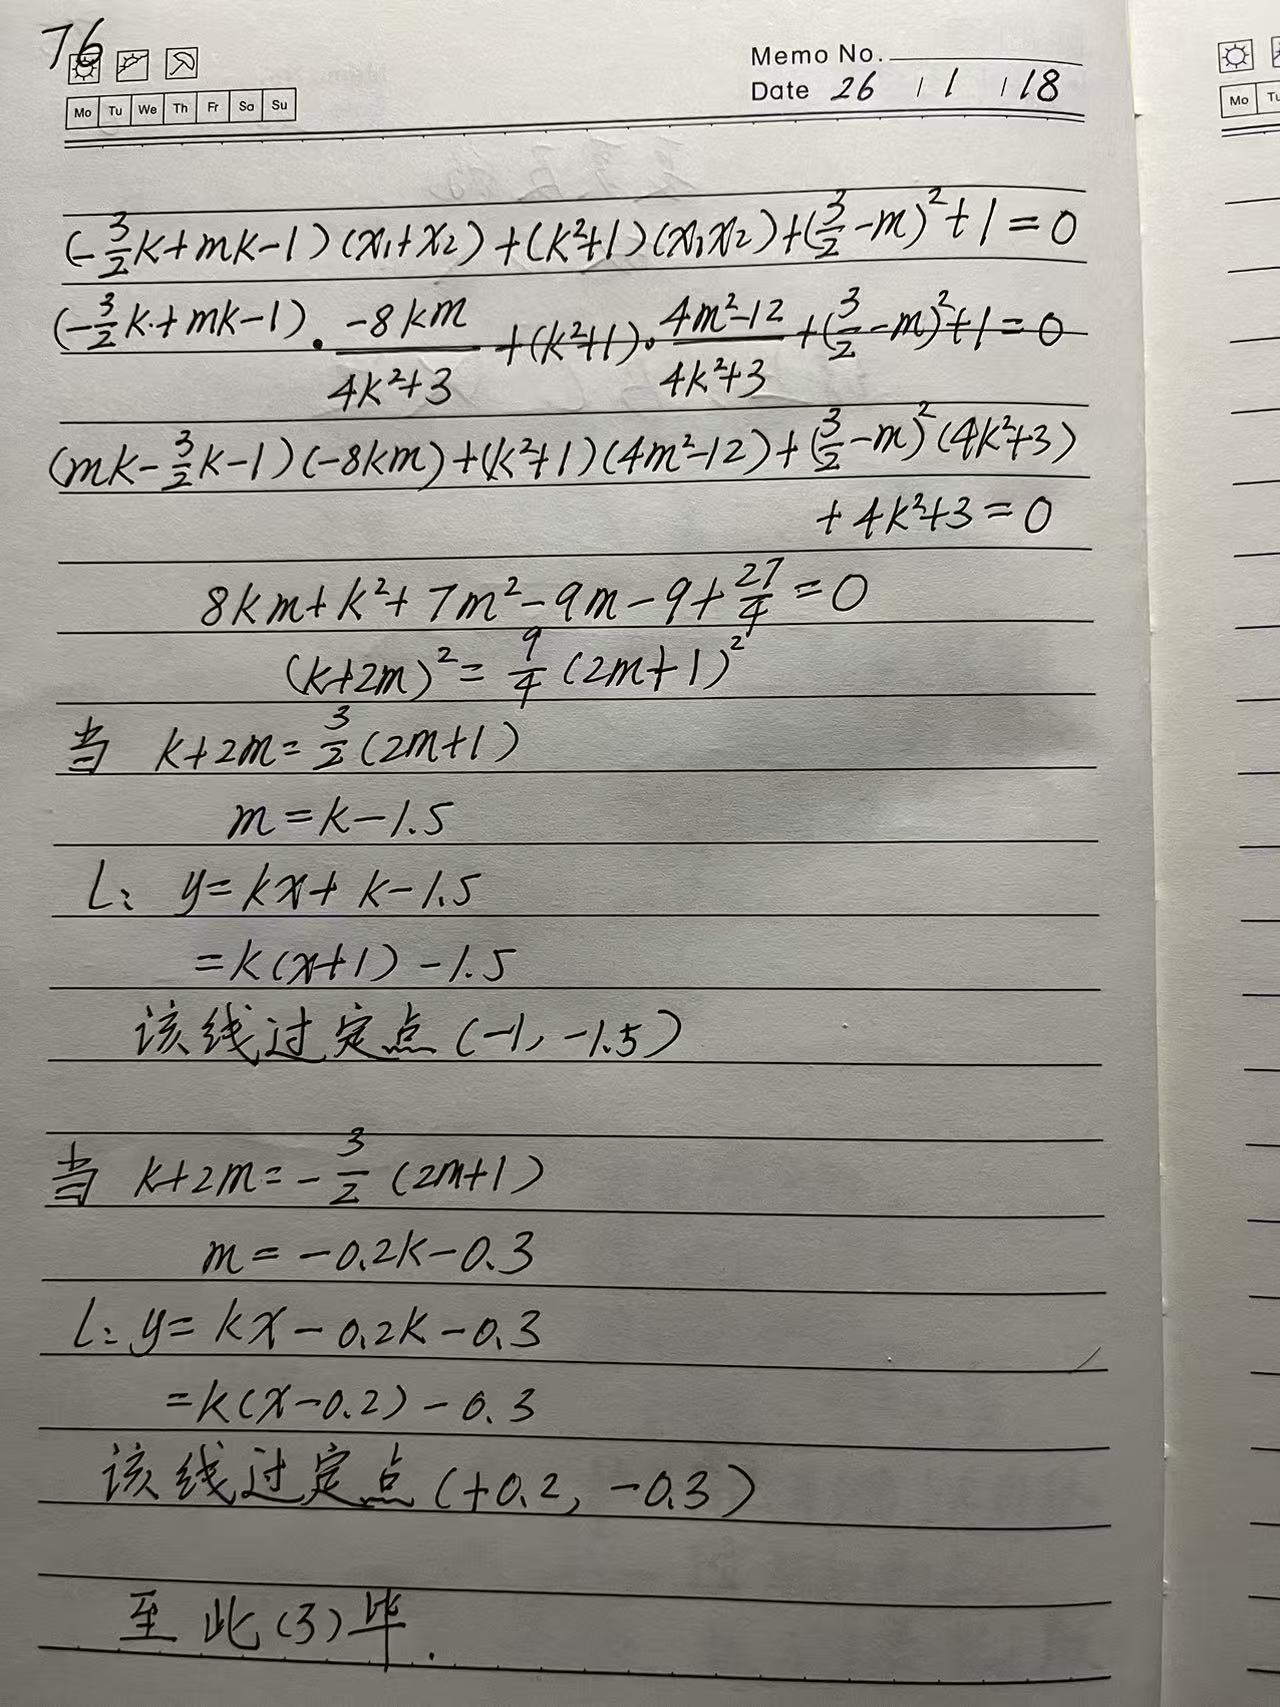 76
Memo No.
Date 26 / 1 / 18
Mo Tu We Th Fr Sa Su
Mo Tu
(-3/2k+mk-1)(x₁+x₂)+(k²+1)(x₁x₂)+(3/2-m)²+1=0
(-3/2k+mk-1)·-8km/4k²+3+(k²+1)·4m²-12/4k²+3+(3/2-m)²+1=0
(mk-3/2k-1)(-8km)+(k²+1)(4m²-12)+(3/2-m)²(4k²+3)
+4k²+3=0
8km+k²+7m²-9m-9+27/4=0
(k+2m)²=9/4(2m+1)²
当 k+2m=3/2(2m+1)
m=k-1.5
L: y=kx+k-1.5
=k(x+1)-1.5
该线过定点(-1,-1.5)
当 k+2m=-3/2(2m+1)
m=-0.2k-0.3
L: y=kx-0.2k-0.3
=k(x-0.2)-0.3
该线过定点(+0.2,-0.3)
至此(3)毕.